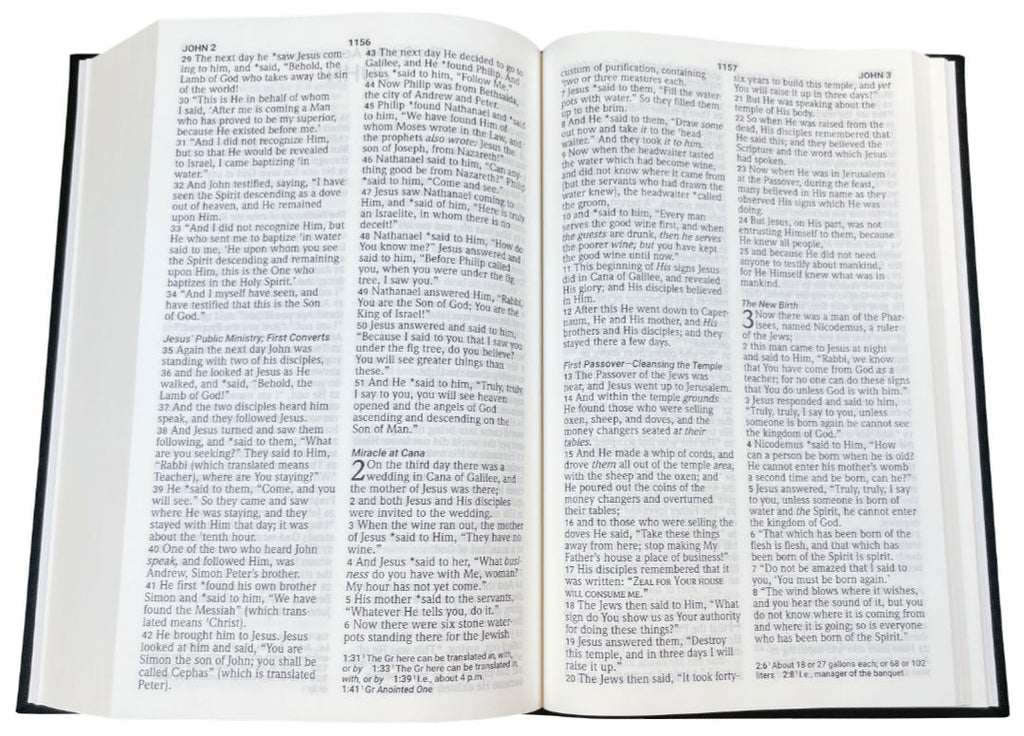 JOHN 2
1156
29 The next day he *saw Jesus com-
ing to him, and *said, “Behold, the
Lamb of God who takes away the sin
of the world!
30 “This is He in behalf of whom
I said, ‘After me is coming a Man
who has proved to be my superior,
because He existed before me.’
31 “And I did not recognize Him,
but so that He would be revealed
to Israel, I came baptizing ¹in
water.”
32 And John testified, saying, “I have
seen the Spirit descending as a dove
out of heaven, and He remained
upon Him.
33 “And I did not recognize Him, but
He who sent me to baptize ¹in water
said to me, ‘He upon whom you see
the Spirit descending and remaining
upon Him, this is the One who
baptizes in the Holy Spirit.’
34 “And I myself have seen, and
have testified that this is the Son
of God.”
Jesus’ Public Ministry; First Converts
35 Again the next day John was
standing with two of his disciples,
36 and he looked at Jesus as He
walked, and *said, “Behold, the
Lamb of God!”
37 And the two disciples heard him
speak, and they followed Jesus.
38 And Jesus turned and saw them
following, and *said to them, “What
are you seeking?” They said to Him,
“Rabbi (which translated means
Teacher), where are You staying?”
39 He *said to them, “Come, and you
will see.” So they came and saw
where He was staying, and they
stayed with Him that day; it was
about the ¹tenth hour.
40 One of the two who heard John
speak, and followed Him, was
Andrew, Simon Peter’s brother.
41 He first *found his own brother
Simon and *said to him, “We have
found the Messiah” (which trans-
lated means ¹Christ).
42 He brought him to Jesus. Jesus
looked at him and said, “You are
Simon the son of John; you shall be
called Cephas” (which is translated
Peter).
43 The next day He decided to go to
Galilee, and He *found Philip. And
Jesus *said to him, “Follow Me.”
44 Now Philip was from Bethsaida,
the city of Andrew and Peter.
45 Philip *found Nathanael and *said
to him, “We have found Him of
whom Moses wrote in the Law, and
the prophets also wrote: Jesus the
son of Joseph, from Nazareth!”
46 Nathanael said to him, “Can any-
thing good be from Nazareth?” Philip
*said to him, “Come and see.”
47 Jesus saw Nathanael coming to
Him, and *said of him, “Here is truly
an Israelite, in whom there is no
deceit!”
48 Nathanael *said to Him, “How do
You know me?” Jesus answered and
said to him, “Before Philip called
you, when you were under the fig
tree, I saw you.”
49 Nathanael answered Him, “Rabbi,
You are the Son of God; You are the
King of Israel!”
50 Jesus answered and said to him,
“Because I said to you that I saw you
under the fig tree, do you believe?
You will see greater things than
these.”
51 And He *said to him, “Truly, truly,
I say to you, you will see heaven
opened and the angels of God
ascending and descending on the
Son of Man.”
Miracle at Cana
2 On the third day there was a
wedding in Cana of Galilee, and
the mother of Jesus was there;
2 and both Jesus and His disciples
were invited to the wedding.
3 When the wine ran out, the mother
of Jesus *said to Him, “They have no
wine.”
4 And Jesus *said to her, “What busi-
ness do you have with Me, woman?
My hour has not yet come.”
5 His mother *said to the servants,
“Whatever He tells you, do it.”
6 Now there were six stone water-
pots standing there for the Jewish
1:31 ¹The Gr here can be translated in, with,
or by 1:33 ¹The Gr here can be translated in,
with, or by 1:39 ¹I.e., about 4 p.m.
1:41 ¹Gr Anointed One
1157
JOHN 3
custom of purification, containing
¹two or three measures each.
7 Jesus *said to them, “Fill the water-
pots with water.” So they filled them
up to the brim.
8 And He *said to them, “Draw some
out now and take it to the ¹head
waiter.” And they took it to him.
9 Now when the headwaiter tasted
the water which had become wine,
and did not know where it came from
(but the servants who had drawn the
water knew), the headwaiter *called
the groom,
10 and *said to him, “Every man
serves the good wine first, and when
the guests are drunk, then he serves
the poorer wine; but you have kept
the good wine until now.”
11 This beginning of His signs Jesus
did in Cana of Galilee, and revealed
His glory; and His disciples believed
in Him.
12 After this He went down to Caper-
naum, He and His mother, and His
brothers and His disciples; and they
stayed there a few days.
First Passover—Cleansing the Temple
13 The Passover of the Jews was
near, and Jesus went up to Jerusalem.
14 And within the temple grounds
He found those who were selling
oxen, sheep, and doves, and the
money changers seated at their
tables.
15 And He made a whip of cords, and
drove them all out of the temple area,
with the sheep and the oxen; and
He poured out the coins of the
money changers and overturned
their tables;
16 and to those who were selling the
doves He said, “Take these things
away from here; stop making My
Father’s house a place of business!”
17 His disciples remembered that it
was written: “ZEAL FOR YOUR HOUSE
WILL CONSUME ME.”
18 The Jews then said to Him, “What
sign do You show us as Your authority
for doing these things?”
19 Jesus answered them, “Destroy
this temple, and in three days I will
raise it up.”
20 The Jews then said, “It took forty-
six years to build this temple, and yet
You will raise it up in three days?”
21 But He was speaking about the
temple of His body.
22 So when He was raised from the
dead, His disciples remembered that
He said this; and they believed the
Scripture and the word which Jesus
had spoken.
23 Now when He was in Jerusalem
at the Passover, during the feast,
many believed in His name as they
observed His signs which He was
doing.
24 But Jesus, on His part, was not
entrusting Himself to them, because
He knew all people,
25 and because He did not need
anyone to testify about mankind,
for He Himself knew what was in
mankind.
The New Birth
3 Now there was a man of the Phar-
isees, named Nicodemus, a ruler
of the Jews;
2 this man came to Jesus at night
and said to Him, “Rabbi, we know
that You have come from God as a
teacher; for no one can do these signs
that You do unless God is with him.”
3 Jesus responded and said to him,
“Truly, truly, I say to you, unless
someone is born again he cannot see
the kingdom of God.”
4 Nicodemus *said to Him, “How
can a person be born when he is old?
He cannot enter his mother’s womb
a second time and be born, can he?”
5 Jesus answered, “Truly, truly, I say
to you, unless someone is born of
water and the Spirit, he cannot enter
the kingdom of God.
6 “That which has been born of the
flesh is flesh, and that which has
been born of the Spirit is spirit.
7 “Do not be amazed that I said to
you, ‘You must be born again.’
8 “The wind blows where it wishes,
and you hear the sound of it, but you
do not know where it is coming from
and where it is going; so is everyone
who has been born of the Spirit.”
2:6 ¹About 18 or 27 gallons each; or 68 or 102
liters 2:8 ¹I.e., manager of the banquet